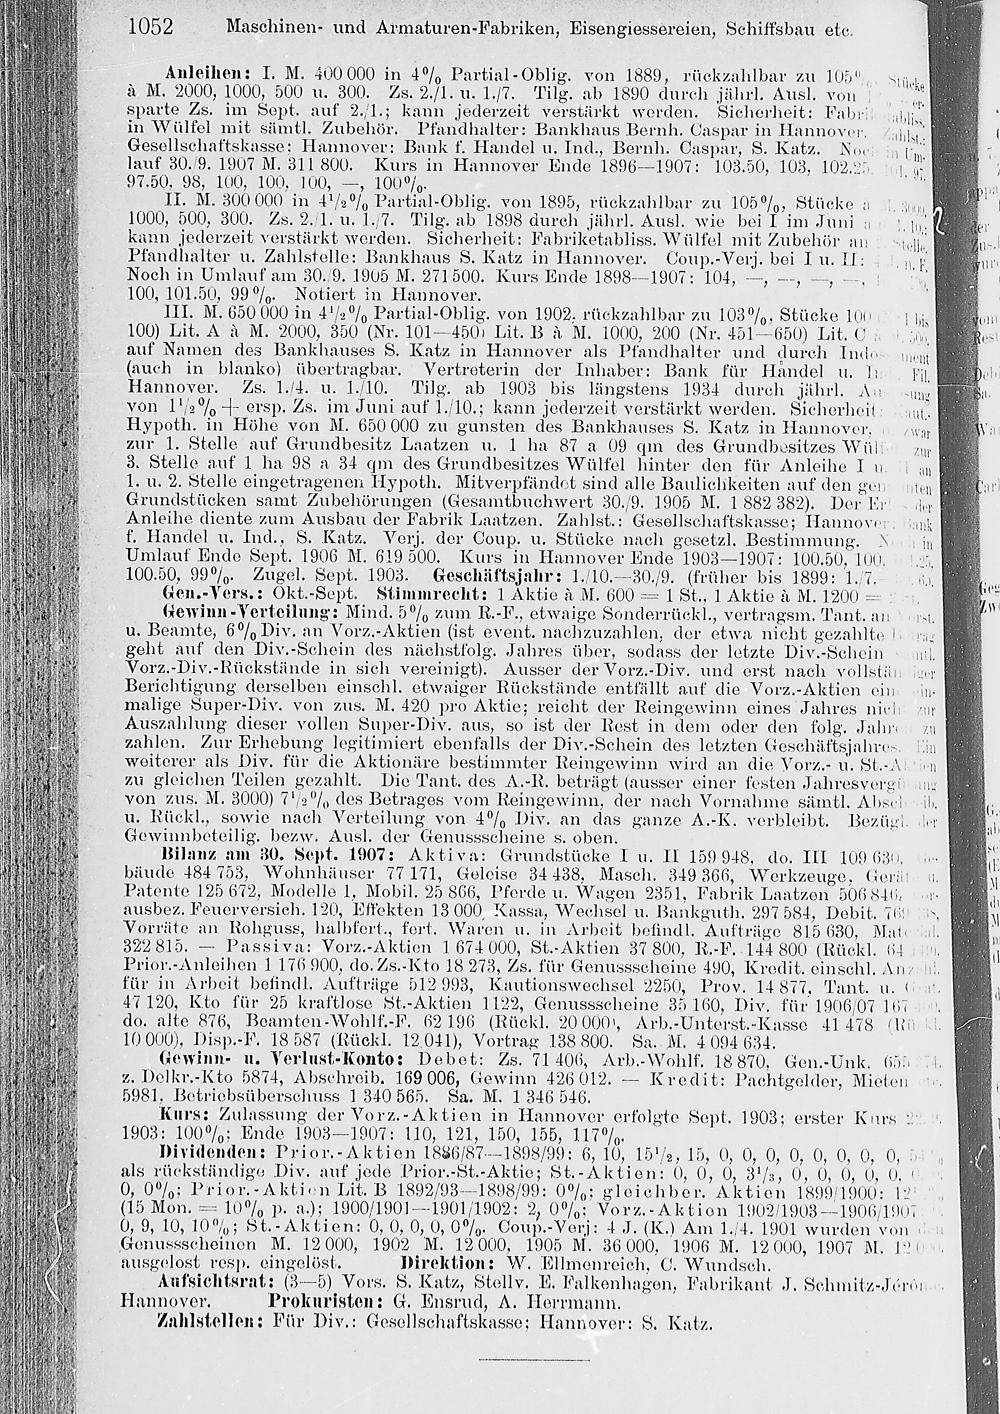 1052 Maschinen- und Armaturen-Fabriken, Eisengiessereien, Schiffsbau etc.
Anleihen: I. M. 400 000 in 4% Partial-Oblig. von 1889, rückzahlbar zu 105%, Stücke
à M. 2000, 1000, 500 u. 300. Zs. 2./1. u. 1./7. Tilg. ab 1890 durch jährl. Ausl. von
sparte Zs. im Sept. auf 2./1.; kann jederzeit verstärkt werden. Sicherheit:
in Wülfel mit sämtl. Zubehör. Pfandhalter: Bankhaus Bernh. Caspar in Hannover. Zahlst.:
Gesellschaftskasse; Hannover: Bank f. Handel u. Ind., Bernh. Caspar, S. Katz. Noch in Um-
lauf 30./9. 1907 M. 311 800. Kurs in Hannover Ende 1896—1907: 103.50, 103, 102.25, 101, 97,
97.50, 98, 100, 100, 100, —, 100%.
II. M. 300 000 in 4½% Partial-Oblig. von 1895, rückzahlbar zu 105%, Stücke à M. 3000,
1000, 500, 300. Zs. 2./1. u. 1./7. Tilg. ab 1898 durch jährl. Ausl. wie bei I im Juni a 1./10.;
kann jederzeit verstärkt werden. Sicherheit: Fabriketabliss. Wülfel mit Zubehör an Stelle.
Pfandhalter u. Zahlstelle: Bankhaus S. Katz in Hannover. Coup.-Verj. bei I u. II: 4 J. n. F.
Noch in Umlauf am 30./9. 1905 M. 271 500. Kurs Ende 1898—1907: 104, —, —, —, —,
100, 101.50, 99%. Notiert in Hannover.
III. M. 650 000 in 4½% Partial-Oblig. von 1902, rückzahlbar zu 103%, Stücke 100 1 bis
100) Lit. A à M. 2000, 350 (Nr. 101—450) Lit. B à M. 1000, 200 (Nr. 451—650) Lit. C à 500,
auf Namen des Bankhauses S. Katz in Hannover als Pfandhalter und durch Indossament
(auch in blanko) übertragbar. Vertreterin der Inhaber: Bank für Handel u. Fil.
Hannover. Zs. 1./4. u. 1./10. Tilg. ab 1903 bis längstens 1934 durch jährl. Auslosung
von 1½% + ersp. Zs. im Juni auf 1./10.; kann jederzeit verstärkt werden. Sicherheit: Kaut.-
Hypoth. in Höhe von M. 650 000 zu gunsten des Bankhauses S. Katz in Hannover, zwar
zur 1. Stelle auf Grundbesitz Laatzen u. 1 ha 87 a 09 qm des Grundbesitzes Wülfel zur
3. Stelle auf 1 ha 98 a 34 qm des Grundbesitzes Wülfel hinter den für Anleihe I u. II an
1. u. 2. Stelle eingetragenen Hypoth. Mitverpfändet sind alle Baulichkeiten auf den genannten
Grundstücken samt Zubehörungen (Gesamtbuchwert 30./9. 1905 M. 1 882 382). Der Erlös der
Anleihe diente zum Ausbau der Fabrik Laatzen. Zahlst.: Gesellschaftskasse; Hannover: Bank
f. Handel u. Ind., S. Katz. Verj. der Coup. u. Stücke nach gesetzl. Bestimmung. Noch in
Umlauf Ende Sept. 1906 M. 619 500. Kurs in Hannover Ende 1903—1907: 100.50, 100,
100.50, 99%. Zugel. Sept. 1903. Geschäftsjahr: 1./10.—30./9. (früher bis 1899: 1./7.—
Gen.-Vers.: Okt.-Sept. Stimmrecht: 1 Aktie à M. 600 = 1 St., 1 Aktie à M. 1200 =
Gewinn-Verteilung: Mind. 5% zum R.-F., etwaige Sonderrückl., vertragsm. Tant. an Vorst.
u. Beamte, 6% Div. an Vorz.-Aktien (ist event. nachzuzahlen, der etwa nicht gezahlte Betrag
geht auf den Div.-Schein des nächstfolg. Jahres über, sodass der letzte Div.-Schein sämtl.
Vorz.-Div.-Rückstände in sich vereinigt). Ausser der Vorz.-Div. und erst nach vollständiger
Berichtigung derselben einschl. etwaiger Rückstände entfällt auf die Vorz.-Aktien eine ein-
malige Super-Div. von zus. M. 420 pro Aktie; reicht der Reingewinn eines Jahres nicht zur
Auszahlung dieser vollen Super-Div. aus, so ist der Rest in dem oder den folg. Jahren zu
zahlen. Zur Erhebung legitimiert ebenfalls der Div.-Schein des letzten Geschäftsjahres. Ein
weiterer als Div. für die Aktionäre bestimmter Reingewinn wird an die Vorz.- u. St.-Aktien
zu gleichen Teilen gezahlt. Die Tant. des A.-R. beträgt (ausser einer festen Jahresvergütung
von zus. M. 3000) 7½% des Betrages vom Reingewinn, der nach Vornahme sämtl. Abschreib.
u. Rückl., sowie nach Verteilung von 4% Div. an das ganze A.-K. verbleibt. Bezügl. der
Gewinnbeteilig. bezw. Ausl. der Genussscheine s. oben.
Bilanz am 30. Sept. 1907: Aktiva: Grundstücke I u. II 159 948, do. III 109 630, Ge-
bäude 484 753, Wohnhäuser 77 171, Geleise 34 438, Masch. 349 366, Werkzeuge, Geräte u.
Patente 125 672, Modelle 1, Mobil. 25 866, Pferde u. Wagen 2351, Fabrik Laatzen 506 846,
ausbez. Feuerversich. 120, Effekten 13 000, Kassa, Wechsel u. Bankguth. 297 584, Debit.
Vorräte an Rohguss, halbfert., fert. Waren u. in Arbeit befindl. Aufträge 815 630, Material.
322 815. — Passiva: Vorz.-Aktien 1 674 000, St.-Aktien 37 800, R.-F. 144 800 (Rückl.
Prior.-Anleihen 1 176 900, do. Zs.-Kto 18 273, Zs. für Genussscheine 490, Kredit. einschl. Anzahl.
für in Arbeit befindl. Aufträge 512 993, Kautionswechsel 2250, Prov. 14 877, Tant. u. Grat.
47 120, Kto für 25 kraftlose St.-Aktien 1122, Genussscheine 35 160, Div. für 1906/07
do. alte 876, Beamten-Wohlf.-F. 62 196 (Rückl. 20 000), Arb.-Unterst.-Kasse 41 478 (Rückl.
10 000), Disp.-F. 18 587 (Rückl. 12 041), Vortrag 138 800. Sa. M. 4 094 634.
Gewinn- u. Verlust-Konto: Debet: Zs. 71 406, Arb.-Wohlf. 18 870, Gen.-Unk.
z. Delkr.-Kto 5874, Abschreib. 169 006, Gewinn 426 012. — Kredit: Pachtgelder, Mieten etc.
5981, Betriebsüberschuss 1 340 565. Sa. M. 1 346 546.
Kurs: Zulassung der Vorz.-Aktien in Hannover erfolgte Sept. 1903; erster Kurs
1903: 100%; Ende 1903—1907: 110, 121, 150, 155, 117%.
Dividenden: Prior.-Aktien 1886/87—1898/99: 6, 10, 15½, 15, 0, 0, 0, 0, 0, 0, 0, 0,
als rückständige Div. auf jede Prior.-St.-Aktie; St.-Aktien: 0, 0, 0, 3⅓, 0, 0, 0, 0, 0,
0, 0%; Prior.-Aktien Lit. B 1892/93—1898/99: 0%; gleichber. Aktien 1899/1900:
(15 Mon. = 10% p. a.); 1900/1901—1901/1902: 2, 0%; Vorz.-Aktien 1902/1903—1906/1907:
0, 9, 10, 10%; St.-Aktien: 0, 0, 0, 0, 0%. Coup.-Verj: 4 J. (K.) Am 1./4. 1901 wurden von den
Genussscheinen M. 12 000, 1902 M. 12 000, 1905 M. 36 000, 1906 M. 12 000, 1907 M.
ausgelost resp. eingelöst. Direktion: W. Ellmenreich, C. Wundsch.
Aufsichtsrat: (3—5) Vors. S. Katz, Stellv. E. Falkenhagen, Fabrikant J. Schmitz-Jérôme,
Hannover. Prokuristen: G. Ensrud, A. Herrmann.
Zahlstellen: Für Div.: Gesellschaftskasse; Hannover: S. Katz.